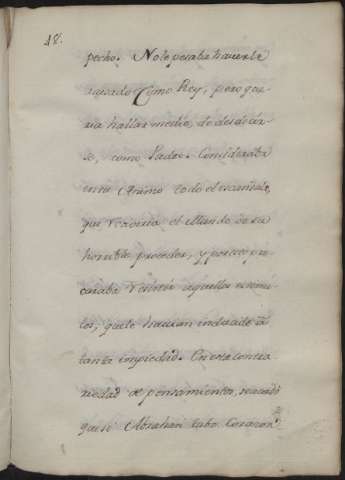 18.
pecho. No le pesaba haverle
vaciado Como Rey, pero que-
ria hallar medio, de desdecir-
se, como Padre. Consideraba
en su Animo todo el escandalo,
que el Mundo de su
horrible proceder, y por eso pro
curaba aquellos
tos, que le havian indu a
tanta impiedad. En esta contra
riedad de pensamientos,
que si Abrahan tubo Corazon